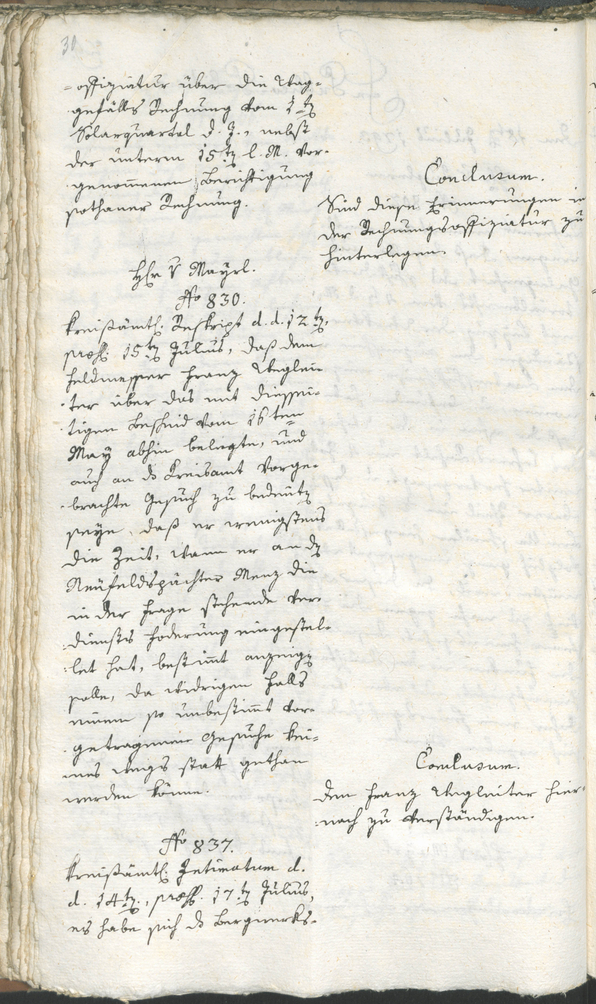 30
-offiziatur über die Wag-
gefälls Rechnung vom 1ten
Solarquartal d. J., nebst
der unterm 15ten l. M. vor-
genommenen Berichtigung
sothaner Rechnung.
Conclusum.
Sind diese Erinnerungen in
der Rechnungsoffiziatur zu
hinterlegen.
Hr. v Mayrl.
No 830.
Kreisämtl. Reskript d. d. 12ten,
präs. 15ten Julius, daß dem
Feldmesser Franz Weglei-
ter über das mit diessei-
tigen Bescheid vom 16ten
May abhin belegte, und
auch an ds Kreisamt vorge-
brachte Gesuch zu bedeuten
seye, daß er wenigstens
die Zeit, wann er an den
Neufeldspächter Menz die
in der Frage stehende Ver-
diensts Foderung eingestel-
let hat, bestimmt anzeigen
solle, da widrigen Falls
einem so unbestimmt vor-
getragenen Gesuche kei-
nes Wegs statt gethan
werden könne.
Conclusum.
Den Franz Wegleiter hier-
nach zu verständigen.
No 837.
Kreisämtl. Intimatum d.
d. 14ten, präs. 17ten Julius,
es habe sich ds Bergwerks-